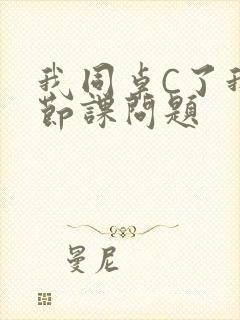 我同卓C了我
節課問題
曼尼